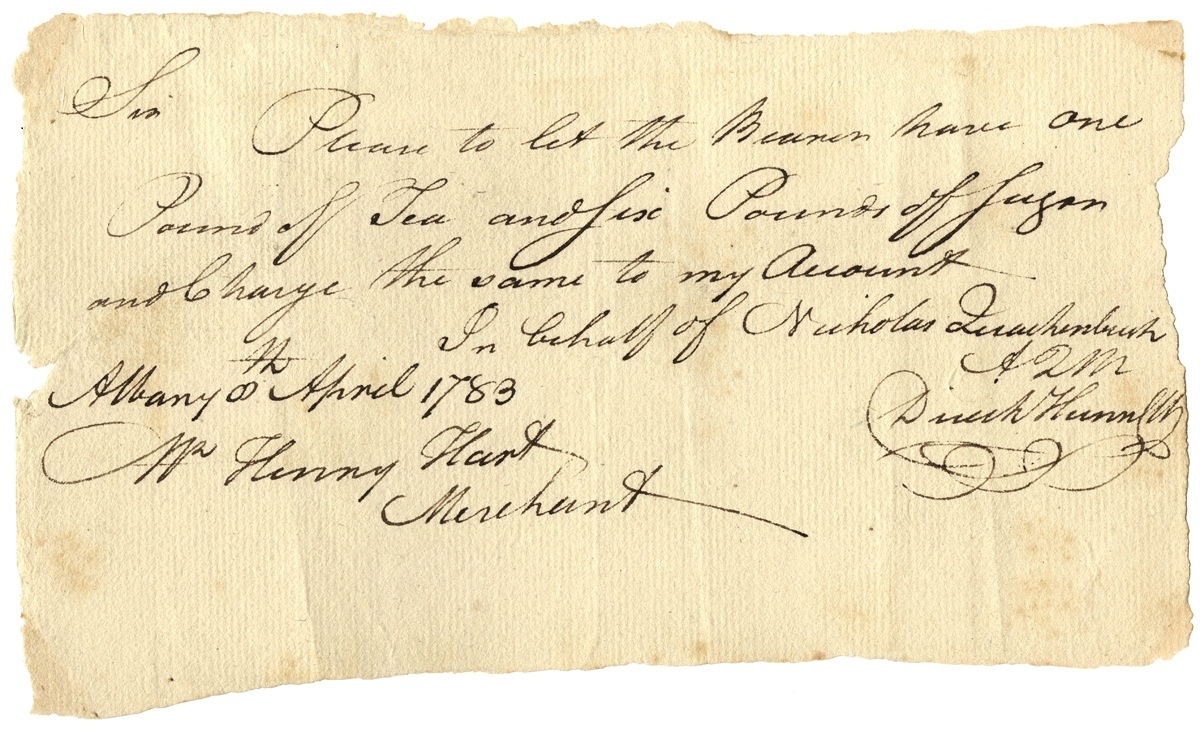 Sir
Please to let the Bearer have one
Pound of Tea and Six Pounds of Sugar
and Charge the same to my Account
In behalf of Nicholas Quackenbush
A Q M
Albany 8th April 1783
Mr Henry Hart
Merchant